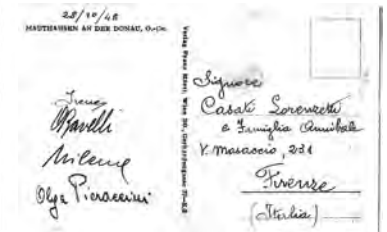 28/10/48
MAUTHAUSEN AN DER DONAU, O.-Oe.
Irene
Ravelli
Milena
Olga Pieraccini
Verlag Franz Wien
Signora
Casati Lorenzetti
e Famiglia Annibale
V. Masaccio, 231
Firenze
(Italia)